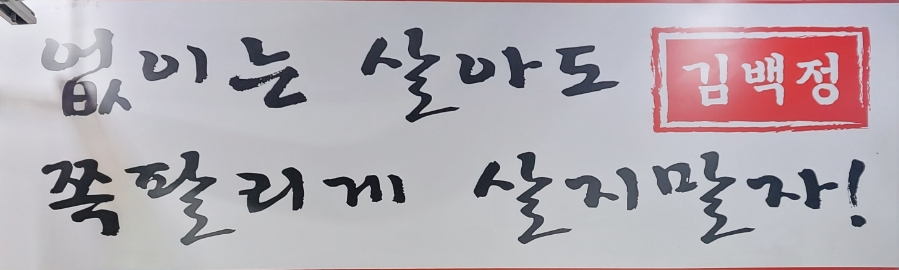 없이는 살아도 김백정
쪽팔리게 살지말자!